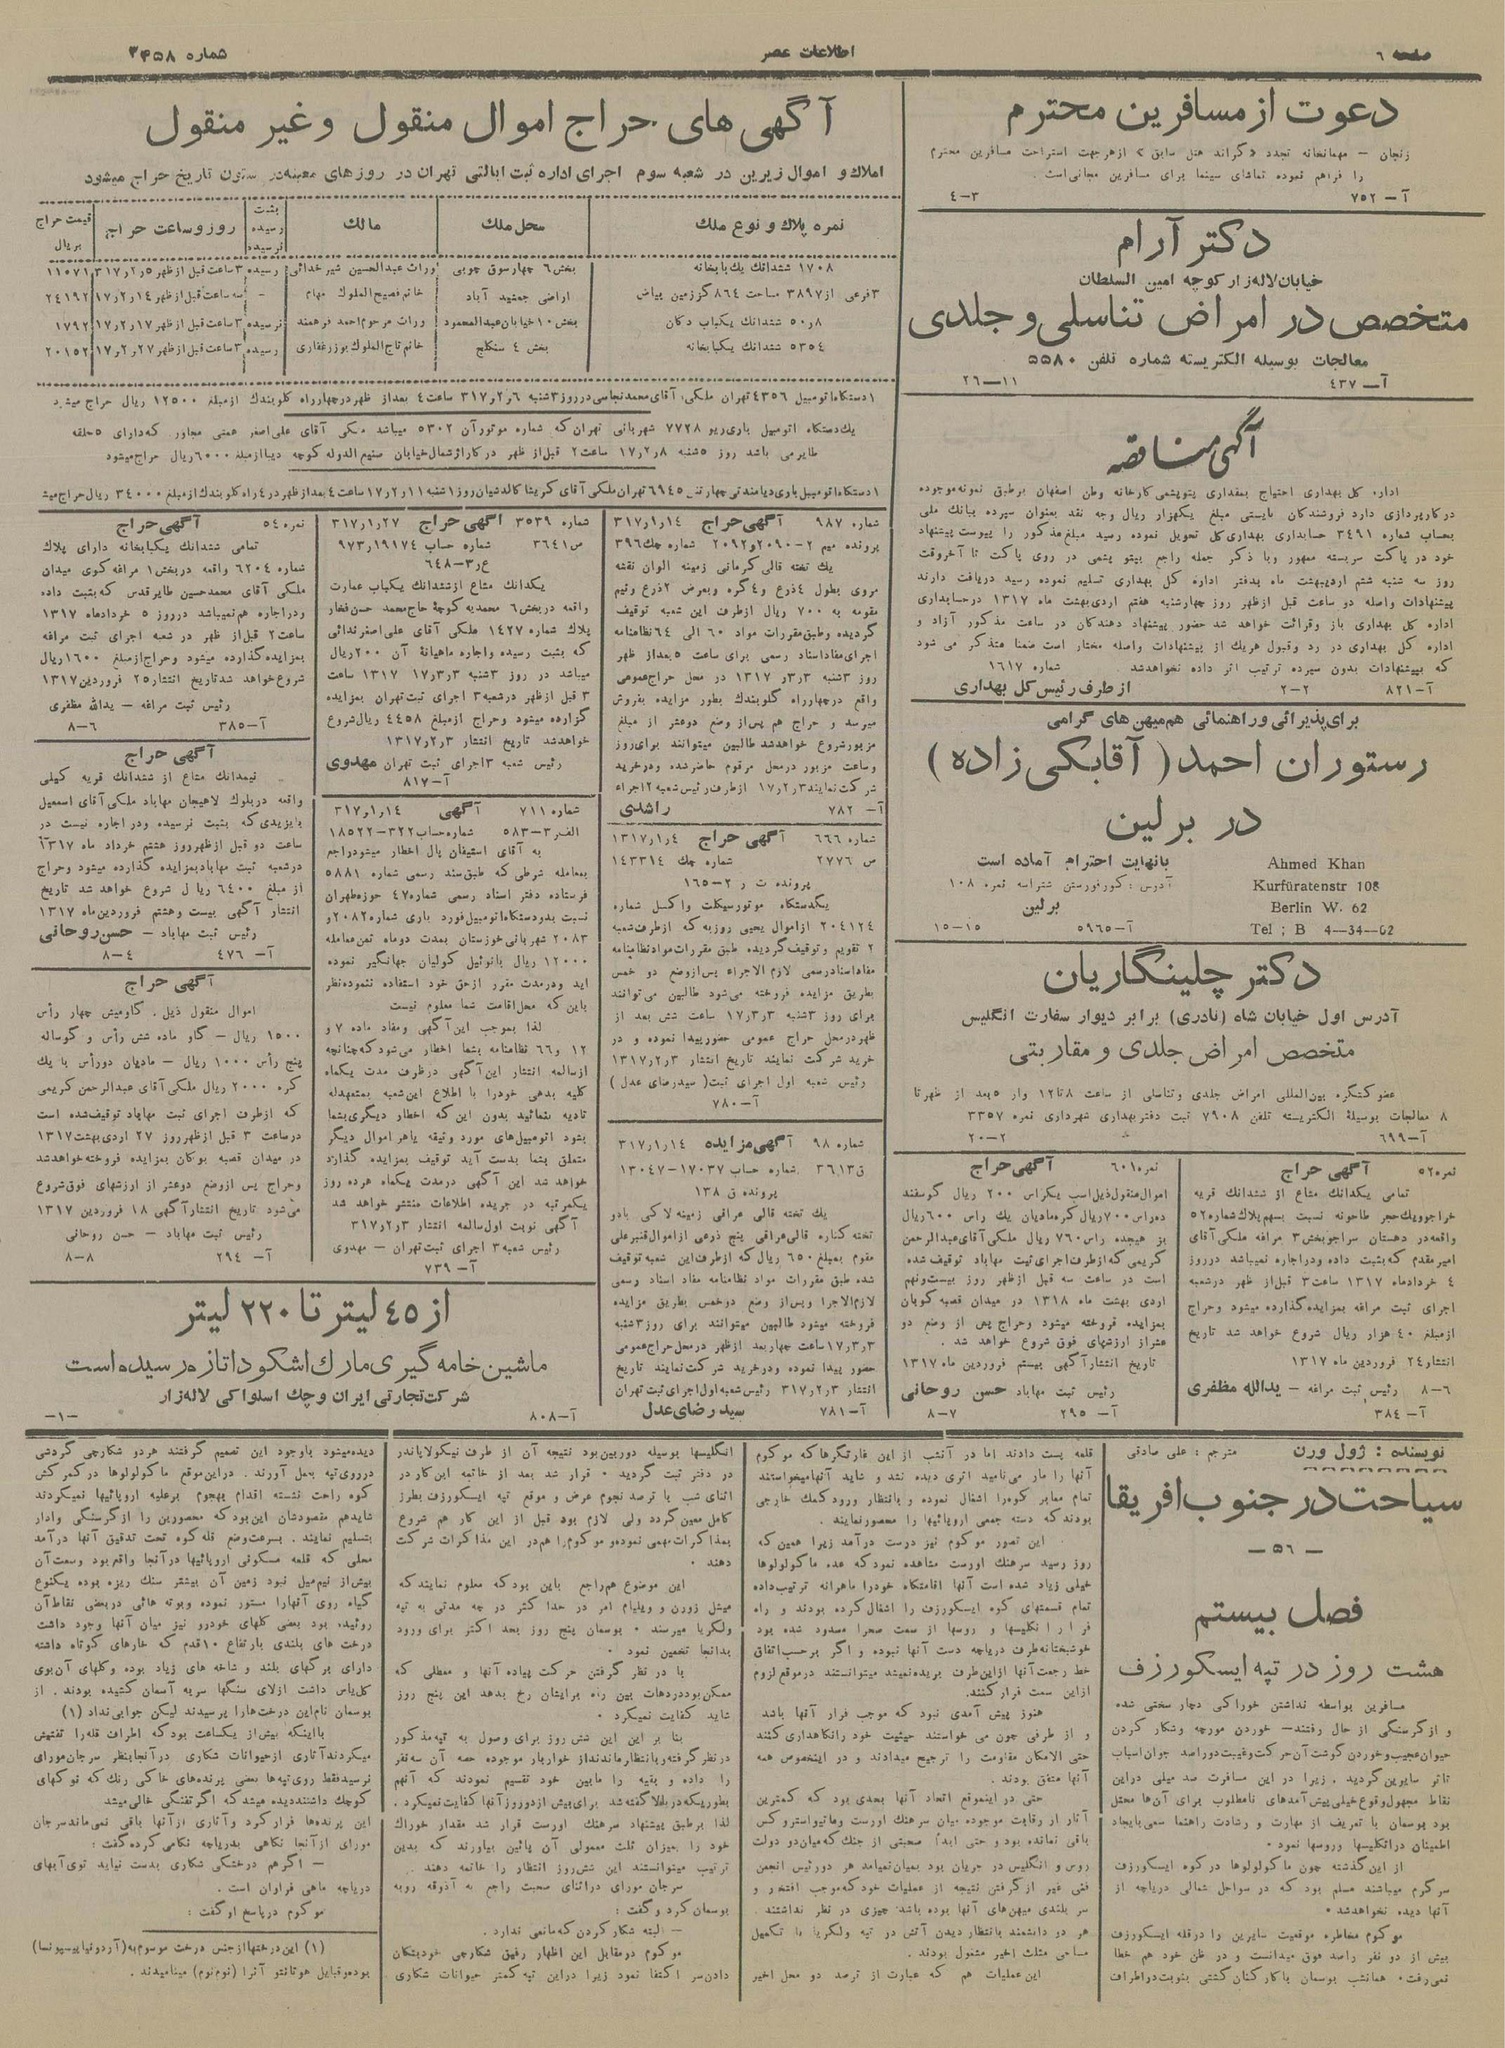 صفحه ٦
اطلاعات عصر
شماره ۳۴۵۸
دعوت از مسافرین محترم
زنجان – مهمانخانه تجدد «گراند هتل سابق» از هرجهت استراحت مسافرین محترم
را فراهم نموده تماشای سینما برای مسافرین مجانی است.
آ – ۷۵۲
۳–۴
دکتر آرام
خیابان لاله‌زار کوچه امین السلطان
متخصص در امراض تناسلی و جلدی
معالجات بوسیله الکتریسته شماره تلفن ۵۵۸۰
آ – ۴۳۷
۱۱–۲۶
آگهی مناقصه
اداره کل بهداری احتیاج بمقداری پتوپشمی کارخانه وطن اصفهان برطبق نمونه موجوده
در کارپردازی دارد فروشندگان بایستی مبلغ یکهزار ریال وجه نقد بعنوان سپرده ببانک ملی
بحساب شماره ۳۴۹۱ حسابداری بهداری کل تحویل نموده رسید مبلغ مذکور را پیوست پیشنهاد
خود در پاکت سربسته ممهور و با ذکر جمله راجع بپتو پشمی در روی پاکت تا آخروقت
روز سه شنبه ششم اردیبهشت ماه بدفتر اداره کل بهداری تسلیم نموده رسید دریافت دارند
پیشنهادات واصله دو ساعت قبل از ظهر روز چهارشنبه هفتم اردی بهشت ماه ۱۳۱۷ در حسابداری
اداره کل بهداری باز و قرائت خواهد شد حضور پیشنهاد دهندگان در ساعت مذکور آزاد و
اداره کل بهداری در رد و قبول هریک از پیشنهادات واصله مختار است ضمنا متذکر می شود
که بپیشنهادات بدون سپرده ترتیب اثر داده نخواهدشد.
شماره ۱۶۱۷
آ–۸۲۱
۲–۲
از طرف رئیس کل بهداری
برای پذیرائی و راهنمائی هم‌میهن های گرامی
رستوران احمد (آقابکی زاده)
در برلین
بانهایت احترام آماده است
آدرس : کورفورستن شتراسه نمره ۱۰۸
برلین
آ–۵۹۶۵
۱۵–۱۵
Ahmed Khan
Kurfüratenstr 108
Berlin W. 62
Tel ; B 4—34—02
دکتر چلینگاریان
آدرس اول خیابان شاه (نادری) برابر دیوار سفارت انگلیس
متخصص امراض جلدی و مقاربتی
عضو کنگره بین‌المللی امراض جلدی و تناسلی از ساعت ۸ تا ۱۲ و از ۵ بعد از ظهر تا
۸ معالجات بوسیلهٔ الکتریسته تلفن ۷۹۰۸ ثبت دفتر بهداری شهرداری نمره ۳۳۵۷
آ–۶۹۹
۲–۲۰
آگهی های حراج اموال منقول و غیر منقول
املاک و اموال زیرین در شعبه سوم اجرای اداره ثبت ایالتی تهران در روزهای معینه در ستون تاریخ حراج میشود
نمره پلاک و نوع ملک
محل ملک
مالک
بثبت رسیده نرسیده
روز و ساعت حراج
قیمت حراج بریال
۱۷۰۸ ششدانک یک بابخانه
بخش ۶ چهارسوق چوبی
وراث عبدالحسین شیر خدائی
رسیده
۳ساعت قبل از ظهر ۵ر۲ر۳۱۷
۱۱۰۷۱
۳فرعی از ۳۸۹۷ مساحت ۸۶۴ گز زمین بیاض
اراضی جمشید آباد
خانم فصیح‌الملوک مهام
–
سه ساعت قبل از ظهر ۱۴ر۲ر۱۷
۲۴۱۹۲
۸ر۵۰ ششدانک یکباب دکان
بخش ۱۰ خیابان عبدالمحمود
وراث مرحوم احمد فرهمند
نرسیده
۳ساعت قبل از ظهر ۱۷ر۲ر۱۷
۱۷۹۲
۵۳۵۴ ششدانک یکبابخانه
بخش ۴ سنگلج
خانم تاج‌الملوک بوزرغفاری
رسیده
۳ساعت قبل از ظهر ۲۷ر۲ر۱۷
۲۰۱۵۲
۱ دستگاه اتومبیل ۴۳۵۶ تهران ملکی آقای محمد نجاسی در روز ۳شنبه ۶ر۲ر۳۱۷ ساعت ۴ بعد از ظهر در چهارراه گلوبندک از مبلغ ۱۲۵۰۰ ریال حراج میشود
یک دستگاه اتومبیل باری ریو ۷۷۲۸ شهربانی تهران که شماره موتور آن ۵۳۰۲ میباشد ملکی آقای علی‌اصغر همتی مجاور که دارای ۵ حلقه
طایر می باشد روز ۵شنبه ۸ر۲ر۱۷ ساعت ۲ قبل از ظهر در کاراژ شمال خیابان صنیم الدوله کوچه دیبا از مبلغ ۶۰۰۰ ریال حراج میشود
شماره ۹۸۷ آگهی حراج ۱۴ر۱ر۳۱۷
پرونده میم ۲–۲۰۹۰ و ۲۰۹۲ شماره چک ۳۹۶
یک تخته قالی کرمانی زمینه الوان نقشه
مروی بطول ۴ذرع و ۴گره و بعرض ۲ذرع ونیم
مقومه به ۷۰۰ ریال از طرف این شعبه توقیف
گردیده وطبق مقررات مواد ۶۰ الی ۶۴ نظامنامه
اجرای مفاد اسناد رسمی برای ساعت ۵ بعد از ظهر
روز ۳شنبه ۳ر۳ر۱۳۱۷ در محل حراج عمومی
واقع در چهارراه گلوبندک بطور مزایده بفروش
میرسد و حراج هم پس از وضع دوعشر از مبلغ
مزبور شروع خواهد شد طالبین میتوانند برای روز
وساعت مزبور در محل مرقوم حاضر شده و در خرید
شرکت نمایند ۳ر۲ر۱۷ از طرف رئیس شعبه ۱۲جراء
آ– ۷۸۲
راشدی
شماره ۶۶۶ آگهی حراج ۴ر۱ر۱۳۱۷
س ۲۷۷۶ شماره چک ۱۴۳۳۱۴
پرونده ت ر ۲–۱۶۵
یکدستگاه موتورسیکلت واکسل شماره
۲۰۴۱۲۴ از اموال یحیی روزبه که از طرف شعبه
۲ تقویم و توقیف گردیده طبق مقررات مواد نظامنامه
مفاد اسناد رسمی لازم الاجراء پس از وضع دو خمس
بطریق مزایده فروخته می‌شود طالبین می‌توانند
برای روز ۳شنبه ۳ر۳ر۱۷ ساعت شش بعد از
ظهر در محل حراج عمومی حضور پیدا نموده و در
خرید شرکت نمایند تاریخ انتشار ۳ر۲ر۱۳۱۷
رئیس شعبه اول اجرای ثبت (سیدرضای عدل)
آ–۷۸۰
شماره ۹۸ آگهی مزایده ۱۴ر۱ر۳۱۷
ق ۳۶۱۳ شماره حساب ۱۷۰۳۷–۱۳۰۴۷
پرونده ق ۱۳۸
یک تخته قالی عراقی زمینه لاکی بادو
تخته کناره قالی عراقی پنج ذرعی از اموال قنبرعلی
مقوم بمبلغ ۶۵۰ ریال که از طرف این شعبه توقیف
شده طبق مقررات مواد نظامنامه مفاد اسناد رسمی
لازم الاجرا و پس از وضع دوخمس بطریق مزایده
فروخته میشود طالبین میتوانند برای روز ۳شنبه
۳ر۳ر۱۷ ساعت چهار بعد از ظهر در محل حراج عمومی
حضور پیدا نموده و در خرید شرکت نمایند تاریخ
انتشار ۳ر۲ر۳۱۷ رئیس شعبه اول اجرای ثبت تهران
آ–۷۸۱
سیدرضای عدل
شماره ۳۵۳۹ آگهی حراج ۲۷ر۱ر۳۱۷
س ۳۶۴۱ شماره حساب ۱۹۱۷۴ر۹۷۳
ع ر۳–۶۴۸
یکدانک مشاع از ششدانک یکباب عمارت
واقعه در بخش ۶ محمدیه کوچهٔ حاج محمد حسن فخار
پلاک شماره ۱۴۲۷ ملکی آقای علی‌اصغر ندائی
که بثبت رسیده و اجاره ماهیانهٔ آن ۲۰۰ ریال
میباشد در روز ۳شنبه ۳ر۳ر۱۷ ۱۳۱۷ ساعت
۳ قبل از ظهر در شعبه ۳ اجرای ثبت تهران بمزایده
گزارده میشود وحراج از مبلغ ۴۴۵۸ ریال شروع
خواهد شد تاریخ انتشار ۳ر۲ر۱۳۱۷
رئیس شعبه ۳ اجرای ثبت تهران مهدوی
آ–۸۱۷
شماره ۷۱۱ آگهی ۱۴ر۱ر۳۱۷
الف ر۳–۵۸۳ شماره حساب ۳۲۲–۱۸۵۲۲
به آقای استیفان پال اخطار میشود راجع
بمعامله شرطی که طبق سند رسمی شماره ۵۸۸۱
فرستاده دفتر اسناد رسمی شماره ۴۷ حوزه طهران
نسبت بدودستگاه اتومبیل فورد باری شماره ۲۰۸۲ و
۲۰۸۳ شهربانی خوزستان بمدت دوماه ثمن معامله
۱۲۰۰۰ ریال بانوئیل کولیان جهانگیر نموده
اید و در مدت مقرر از حق خود استفاده ننموده نظر
باین که محل اقامت شما معلوم نیست
لذا بموجب این آگهی ومفاد ماده ۷ و
۱۲ و ۶۶ نظامنامه بشما اخطار می‌شود که چنانچه
از سالمه انتشار این آگهی در ظرف مدت یکماه
کلیه بدهی خودرا با اطلاع این شعبه بمتعهدله
تادیه ننمائید بدون این که اخطار دیگری بشما
بشود اتومبیل‌های مورد وثیقه یا هر اموال دیگر
متعلق بشما بدست آید توقیف بمزایده گذارده
خواهد شد این آگهی در مدت یکماه هر ده روز
یکمرتبه در جریده اطلاعات منتشر خواهد شد
آگهی نوبت اول سالمه انتشار ۳ر۲ر۳۱۷
رئیس شعبه ۳ اجرای ثبت تهران – مهدوی
آ–۷۳۹
نمره ۵۴ آگهی حراج
تمامی ششدانک یکبابخانه دارای پلاک
شماره ۶۲۰۴ واقعه در بخش ۱ مراغه کوی میدان
ملکی آقای محمدحسین طایر قدس که بثبت داده
و در اجاره هم نمیباشد در روز ۵ خرداد ماه ۱۳۱۷
ساعت ۲ قبل از ظهر در شعبه اجرای ثبت مراغه
بمزایده گذارده میشود وحراج از مبلغ ۱۶۰۰ ریال
شروع خواهد شد تاریخ انتشار ۲۵ فروردین ۱۳۱۷
رئیس ثبت مراغه – یدالله مظفری
آ–۳۸۵
۶–۸
آگهی حراج
نیمدانک مشاع از ششدانک قریه گیلی
واقعه در بلوک لاهیجان مهاباد ملکی آقای اسمعیل
بایزیدی که بثبت نرسیده و در اجاره نیست در
ساعت دو قبل از ظهر روز هشتم خرداد ماه ۱۳۱۷
در شعبه ثبت مهاباد بمزایده گذارده میشود وحراج
از مبلغ ۶۴۰۰ ریال شروع خواهد شد تاریخ
انتشار آگهی بیست وهشتم فروردین ماه ۱۳۱۷
رئیس ثبت مهاباد – حسن روحانی
آ– ۴۷۶
۴–۸
آگهی حراج
اموال منقول ذیل، گاومیش چهار رأس
۱۵۰۰ ریال – گاو ماده شش رأس و گوساله
پنج رأس ۱۰۰۰ ریال – مادیان دورأس با یک
کره ۲۰۰۰ ریال ملکی آقای عبدالرحمن کریمی
که از طرف اجرای ثبت مهاباد توقیف شده است
در ساعت ۳ قبل از ظهر روز ۲۷ اردی بهشت ۱۳۱۷
در میدان قصبه بوکان بمزایده فروخته خواهد شد
وحراج پس از وضع دوعشر از ارزشهای فوق شروع
می‌شود تاریخ انتشار آگهی ۱۸ فروردین ۱۳۱۷
رئیس ثبت مهاباد – حسن روحانی
آ– ۲۹۴
۸–۸
نمره ۵۲ آگهی حراج
تمامی یکدانک مشاع از ششدانک قریه
خراجو و یک حجر طاحونه نسبت بسهم پلاک شماره ۵۲
واقعه در دهستان سراجو بخش ۳ مراغه ملکی آقای
امیر مقدم که بثبت داده و در اجاره نمیباشد در روز
۴ خرداد ماه ۱۳۱۷ ساعت ۳ قبل از ظهر در شعبه
اجرای ثبت مراغه بمزایده گذارده میشود وحراج
از مبلغ ۴۰ هزار ریال شروع خواهد شد تاریخ
انتشار ۲۴ فروردین ماه ۱۳۱۷
۶–۸ رئیس ثبت مراغه – یدالله مظفری
آ– ۳۸۴
نمره ۶۰۱ آگهی حراج
اموال منقول ذیل اسب یک راس ۲۰۰ ریال گوسفند
ده راس ۷۰۰ ریال کره مادیان یک راس ۶۰۰ ریال
بز هیجده راس ۷۶۰ ریال ملکی آقای عبدالرحمن
کریمی که از طرف اجرای ثبت مهاباد توقیف شده
است در ساعت سه قبل از ظهر روز بیست ونهم
اردی بهشت ماه ۱۳۱۸ در میدان قصبه کوپان
بمزایده فروخته میشود وحراج پس از وضع دو
عشر از ارزشهای فوق شروع خواهد شد.
تاریخ انتشار آگهی بیستم فروردین ماه ۱۳۱۷
رئیس ثبت مهاباد حسن روحانی
آ– ۲۹۵
۷–۸
از ۴۵ لیتر تا ۲۲۰ لیتر
ماشین خامه گیری مارک اشکودا تازه رسیده است
شرکت تجارتی ایران و چک اسلواکی لاله‌زار
آ–۸۰۸
–۱–
نویسنده : ژول ورن
مترجم : علی صادقی
سیاحت در جنوب افریقا
– ۵۶ –
فصل بیستم
هشت روز در تپه ایسکورزف
مسافرین بواسطه نداشتن خوراکی دچار سختی شده
و از گرسنگی از حال رفتند – خوردن مورچه وشکار کردن
حیوان عجیب و خوردن گوشت آن حرکت و غیبت دوراصد جوان اسباب
تاثر سایرین گردید. زیرا در این مسافرت صد میلی در این
نقاط مجهول وقوع خیلی پیش آمدهای نامطلوب برای آن‌ها محتمل
بود بوسمان با تعریف از مهارت و رشادت راهنما سعی بایجاد
اطمینان در انگلیسها و روسها نمود.
از این گذشته چون ماکولولوها در کوه ایسکورزف
سرگرم میباشند مسلم بود که در سواحل شمالی دریاچه از
آنها دیده نخواهد شد.
موکوم مخاطره موقعیت سایرین را در قله ایسکورزف
بیش از دو نفر راصد فوق میدانست و در ظن خود هم خطا
نمی‌رفت. همانشب بوسمان با کارکنان کشتی بنوبت در اطراف
قلعه پست دادند اما در آنشب از این غارتگرها که موکوم
آنها را مار می‌نامید اثری دیده نشد و شاید آنها میخواستند
تمام معابر کوه را اشغال نموده و بانتظار ورود کمک خارجی
بودند که دسته جمعی اروپائیها را محصور نمایند.
این تصور موکوم نیز درست درآمد زیرا همین که
روز رسید سرهنک اورست مشاهده نمود که عده ماکولولوها
خیلی زیاد شده است آنها اقامتگاه خودرا ماهرانه ترتیب داده
تمام قسمتهای کوه ایسکورزف را اشغال کرده بودند و راه
فرار انگلیسها و روسها از سمت صحرا مسدود شده بود
خوشبختانه طرف دریاچه دست آنها نبوده و اگر برحسب اتفاق
خط رجعت آنها از این طرف بریده نمیشد میتوانستند در موقع لزوم
از این سمت فرار کنند.
هنوز پیش آمدی نبود که موجب فرار آنها باشد
و از طرفی چون می خواستند حیثیت خود را نگاهداری کنند
حتی الامکان مقاومت را ترجیح میدادند و در اینخصوص همه
آنها متفق بودند.
حتی در اینموقع اتحاد آنها بحدی بود که کمترین
آثار از رقابت موجوده میان سرهنک اورست و ماتیواستروکس
باقی نمانده بود و حتی ابداً صحبتی از جنک که میان دو دولت
روس و انگلیس در جریان بود بمیان نمیامد هر دو رئیس انجمن
فنی غیر از گرفتن نتیجه از عملیات خود که موجب افتخار و
سر بلندی میهن‌های آنها بوده باشد، چیزی در نظر نداشتند.
هر دو دانشمند بانتظار دیدن آتش در تپه ولگریا با تکمیل
مساحی مثلث اخیر مشغول بودند.
این عملیات هم که عبارت از ترصد دو محل اخیر
انگلیسها بوسیله دوربین بود نتیجه آن از طرف نیکولا پالاندر
در دفتر ثبت گردید. قرار شد بعد از خاتمه این کار در
اثنای شب با ترصد نجوم عرض و موقع تپه ایسکورزف بطرز
کامل معین گردد ولی لازم بود قبل از این کار هم شروع
بمذاکرات مهمی نموده و موکوم را هم در این مذاکرات شرکت
دهند.
این موضوع هم راجع باین بود که معلوم نمایند که
میشل زورن و ویلیام امر در حدا کثر در چه مدتی به تپه
ولگریا میرسند. بوسمان پنج روز بحد اکثر برای ورود
بدانجا تخمین نمود.
با در نظر گرفتن حرکت پیاده آنها و معطلی که
ممکن بود در دهات بین راه برایشان رخ بدهد این پنج روز
شاید کفایت نمیکرد.
بنا بر این این شش روز برای وصول به تپه مذکور
در نظر گرفته و بانتظار ماندند از خواربار موجوده حصه آن سه نفر
را داده و بقیه را مابین خود تقسیم نمودند که آنهم
بطوریکه در بالا گفته شد برای بیش از دوروز آنها کفایت نمیکرد.
لذا برطبق پیشنهاد سرهنک اورست قرار شد مقدار خوراک
خود را بمیزان ثلث معمولی آن پائین بیاورند که بدین
ترتیب میتوانستند این شش روز انتظار را خاتمه دهند.
سرجان مورای در اثنای صحبت راجع به آذوقه روبه
بوسمان کرد و گفت:
– البته شکار کردن که مانعی ندارد.
موکوم در مقابل این اظهار رفیق شکارچی خود بتکان
دادن سر اکتفا نمود زیرا در این تپه کمتر حیوانات شکاری
دیده میشود باوجود این تصمیم گرفتند هر دو شکارچی گردشی
در روی تپه بعمل آورند. در این موقع ماکولولوها در کمرکش
کوه راحت نشسته اقدام بهجوم برعلیه اروپائیها نمیکردند
شاید هم مقصودشان این بود که محصورین را از گرسنگی وادار
بتسلیم نمایند. بسرعت وضع قله کوه تحت تدقیق آنها درآمد
محلی که قلعه مسکونی اروپائیها در آنجا واقع بود وسعت آن
بیش از نیم میل نبود زمین آن بیشتر سنک ریزه بوده یکنوع
گیاه روی آنها را مستور نموده و بوته هائی در بعضی نقاط آن
روئیده بود بعضی گلهای خودرو نیز میان آنها وجود داشت
درخت های بلندی بارتفاع ۱۰ قدم که خارهای کوتاه داشته
دارای برگهای بلند و شاخه های زیاد بوده وگلهای آن بوی
گل یاس داشت از لای سنگها سر به آسمان کشیده بودند. از
بوسمان نام این درخت‌ها را پرسیدند لیکن جوابی نداد (۱)
بااینکه بیش از یکساعت بود که اطراف قله را تفتیش
میکردند آثاری از حیوانات شکاری در آنجا بنظر سرجان مورای
نرسید فقط روی تپه‌ها بعضی پرنده‌های خاکی رنک که نوکهای
کوچک داشتند دیده میشد که اگر تفنگی خالی میشد
این پرنده‌ها فرار کرد و آثاری از آنها باقی نمی‌ماند سرجان
مورای از آنجا نگاهی بدریاچه نگامی کرده گفت:
– اگر هم در خشگی شکاری بدست نیاید توی آبهای
دریاچه ماهی فراوان است.
موکوم در پاسخ او گفت:
(۱) این درختها از جنس درخت موسوم به (آردونیا بیسپونسا)
بوده و قبایل هوتانتو آنرا (نوم نوم) مینامیدند.